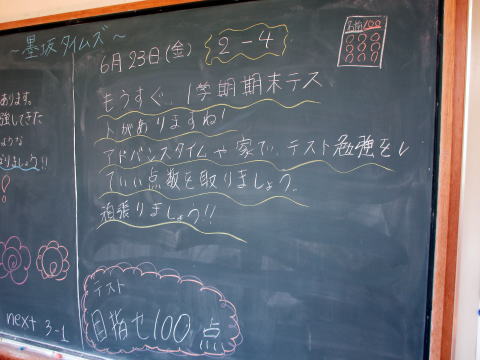 ～墨坂タイムズ～
あります。
強してきた
ような
なりましょう!!
!
next 3-1
6月23日(金)
2-4
名前100
もうすぐ、1学期期末テス
トがありますね!
アドバンスタイムや家で、テスト勉強をし
ていい点数を取りましょう。
頑張りましょう!!
テスト
目指せ100点